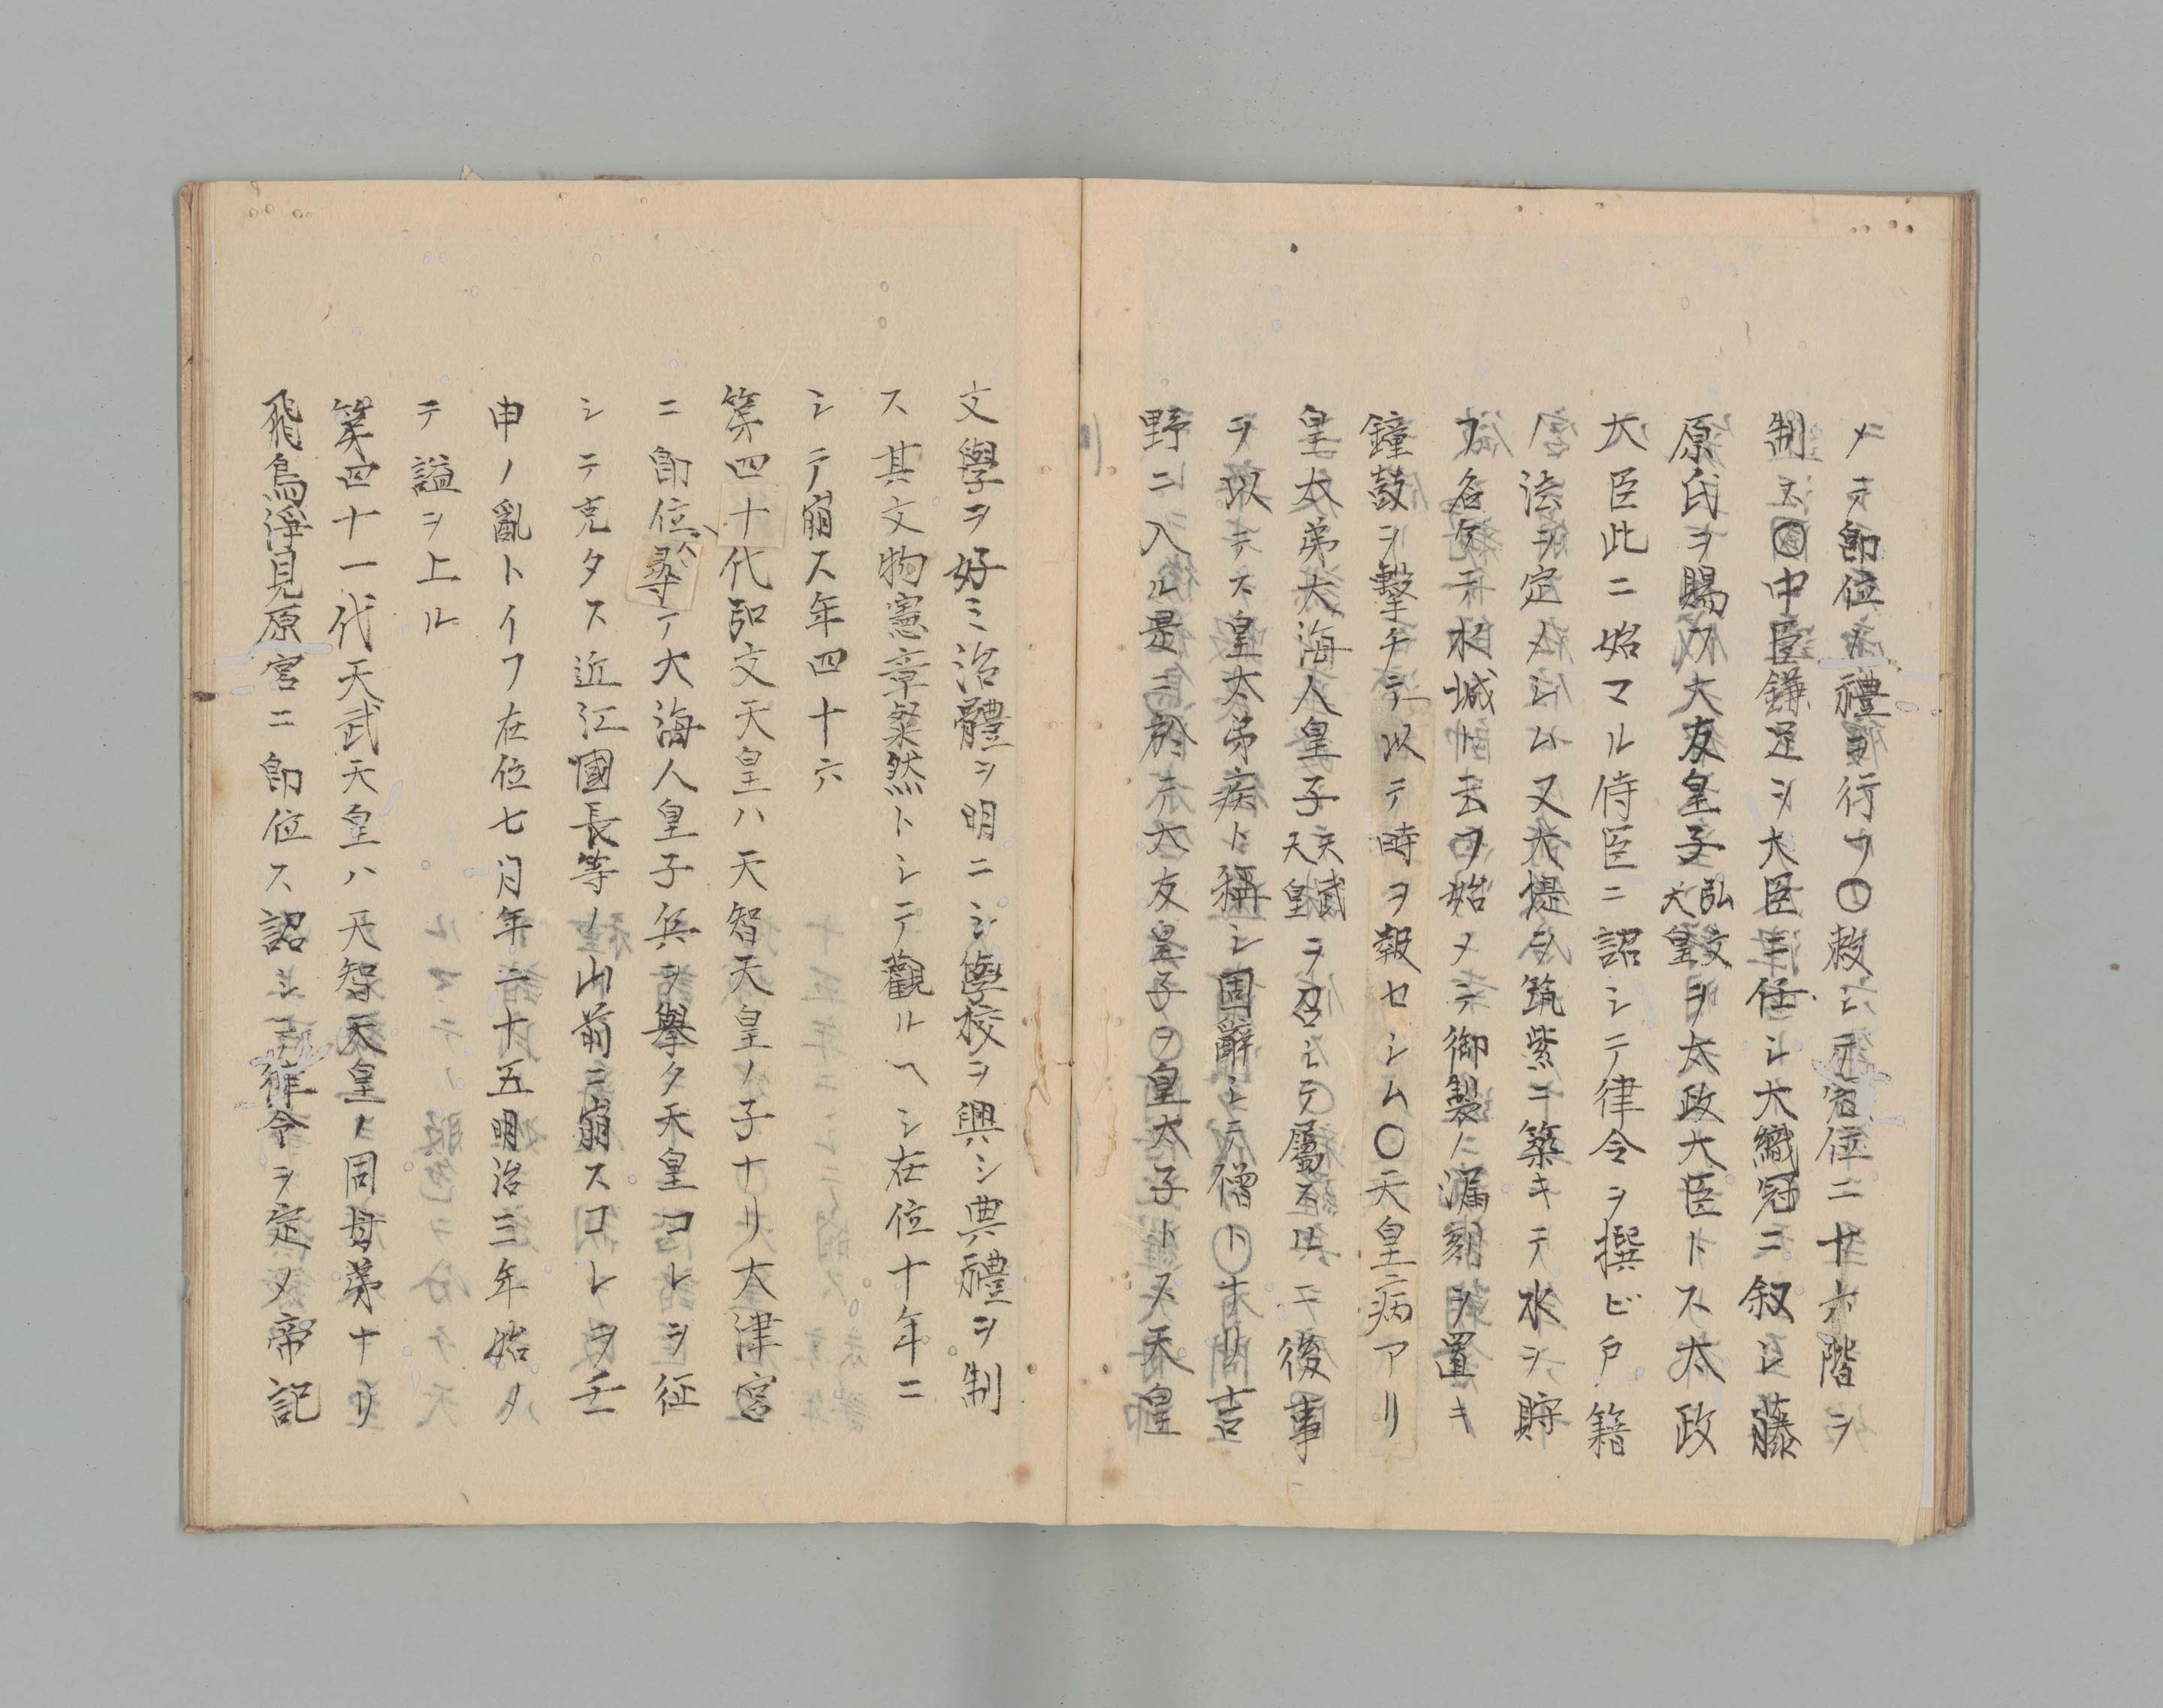 メテ卽位ノ禮ヲ行フ〇敕シテ冠位二十六階ヲ
制ス〇中臣鎌足ヲ大臣ニ任シ大織冠ニ叙シ藤
原氏ヲ賜フ大友皇子弘文天皇ヲ太政大臣トス太政
大臣此ニ始マル侍臣ニ詔シテ律令ヲ撰ビ戸籍
ノ法ヲ定メシム又大堤ヲ筑紫ニ築キテ水ヲ貯
フ名ケテ水城ト云フ始メテ御製ノ漏刻ヲ置キ
鐘鼓ヲ擊チテ以テ時ヲ報セシム〇天皇病アリ
皇太弟大海人皇子天武天皇ヲ召シテ屬スルニ後事
ヲ以テス皇太弟病ト稱シ固辭シテ僧トナリ吉
野ニ入ル是ニ於テ大友皇子ヲ皇太子トス天皇
文學ヲ好ミ治體ヲ明ニシ學校ヲ興シ典禮ヲ制
ス其文物憲章粲然トシテ觀ルヘシ在位十年ニ
シテ崩ス年四十六
第四十代弘文天皇ハ天智天皇ノ子ナリ大津宮
ニ卽位ス尋テ大海人皇子兵ヲ擧ク天皇コレヲ征
シテ克タス近江國長等ノ山前ニ崩スコレヲ壬
申ノ亂トイフ在位七月年二十五明治三年始メ
テ謚ヲ上ル
第四十一代天武天皇ハ天智天皇ノ同母弟ナリ
飛鳥淨見原宮ニ卽位ス詔シテ律令ヲ定メ帝記